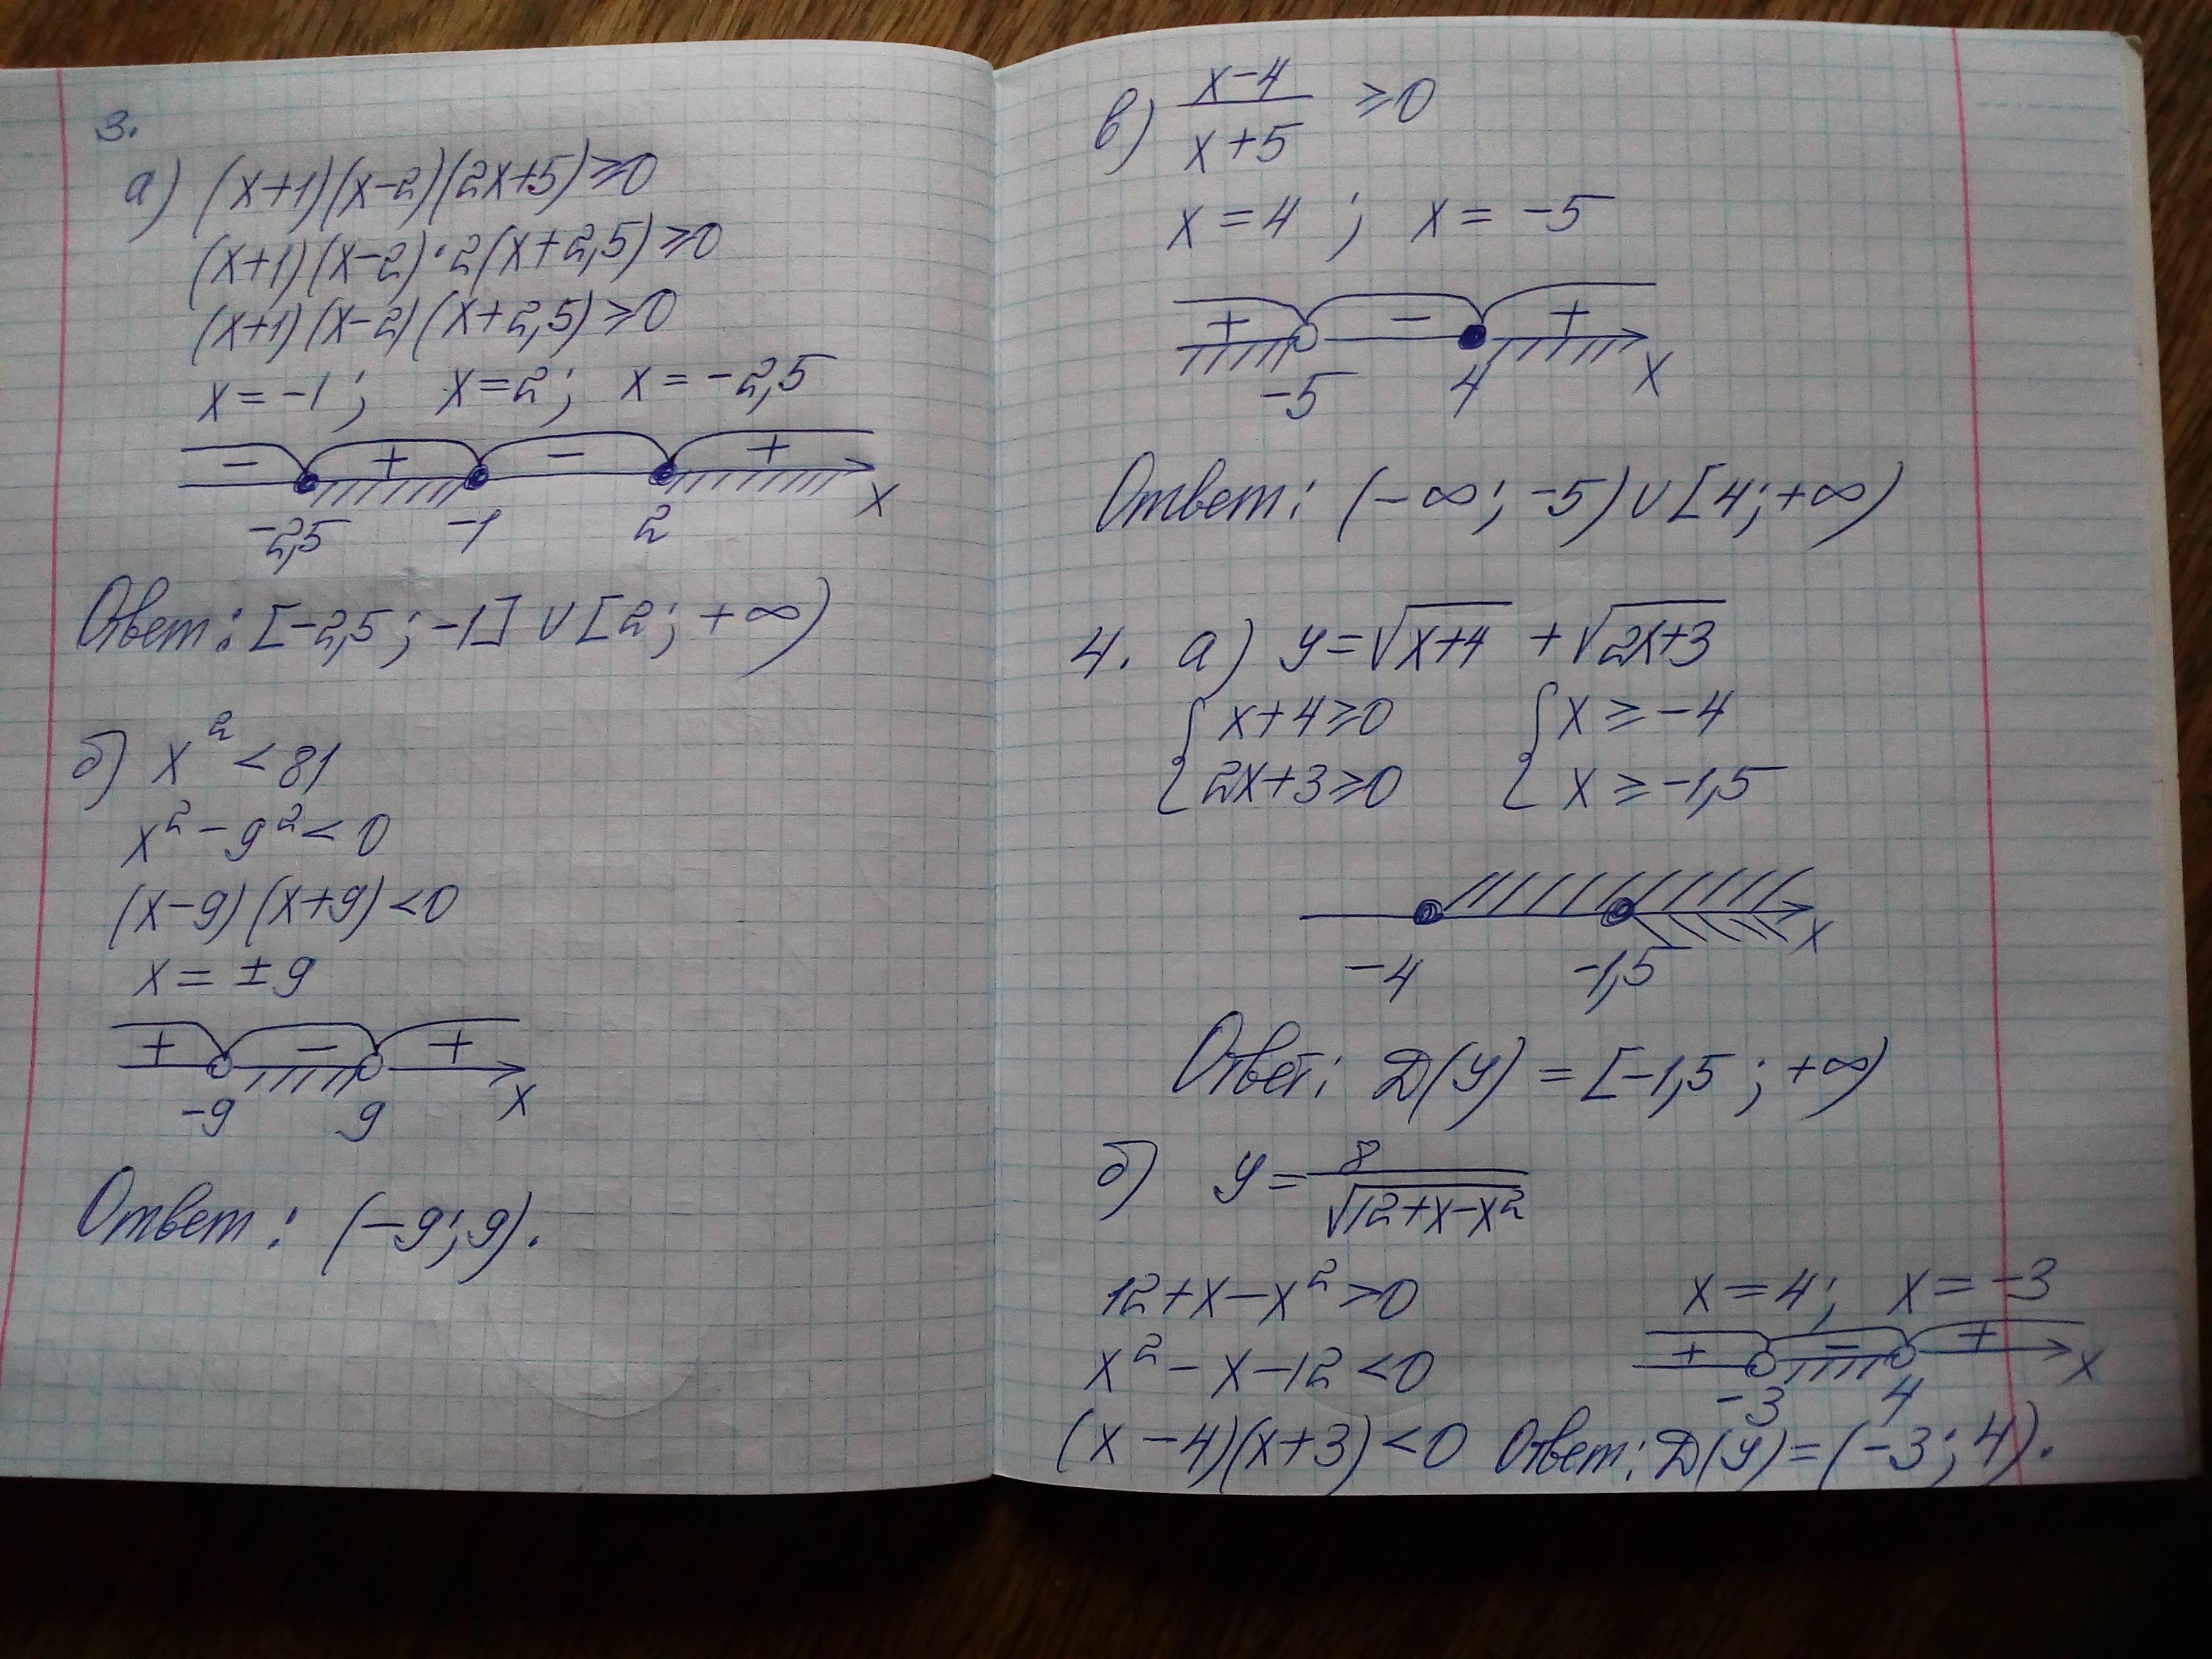 3.
а) (x+1)(x-2)(2x+5)⩾0
(x+1)(x-2)·2(x+2,5)⩾0
(x+1)(x-2)(x+2,5)⩾0
x=-1; x=2; x=-2,5
- + - +
-2,5 -1 2 x
Ответ: [-2,5; -1] ∪ [2; +∞)
б) x² < 81
x² - 9² < 0
(x-9)(x+9)<0
x = ±9
+ - +
-9 9 x
Ответ: (-9; 9).
в) (x-4)/(x+5) ⩾0
x=4; x=-5
+ - +
-5 4 x
Ответ: (-∞; -5) ∪ [4; +∞)
4. а) y=√(x+4) + √(2x+3)
{ x+4⩾0 { x ⩾ -4
{ 2x+3⩾0 { x ⩾ -1,5
-4 -1,5 x
Ответ: D(y) = [-1,5; +∞)
б) y = 8/√(12+x-x²)
12+x-x²>0
x²-x-12<0
(x-4)(x+3)<0
x=4; x=-3
+ - +
-3 4 x
Ответ: D(y)=(-3; 4).